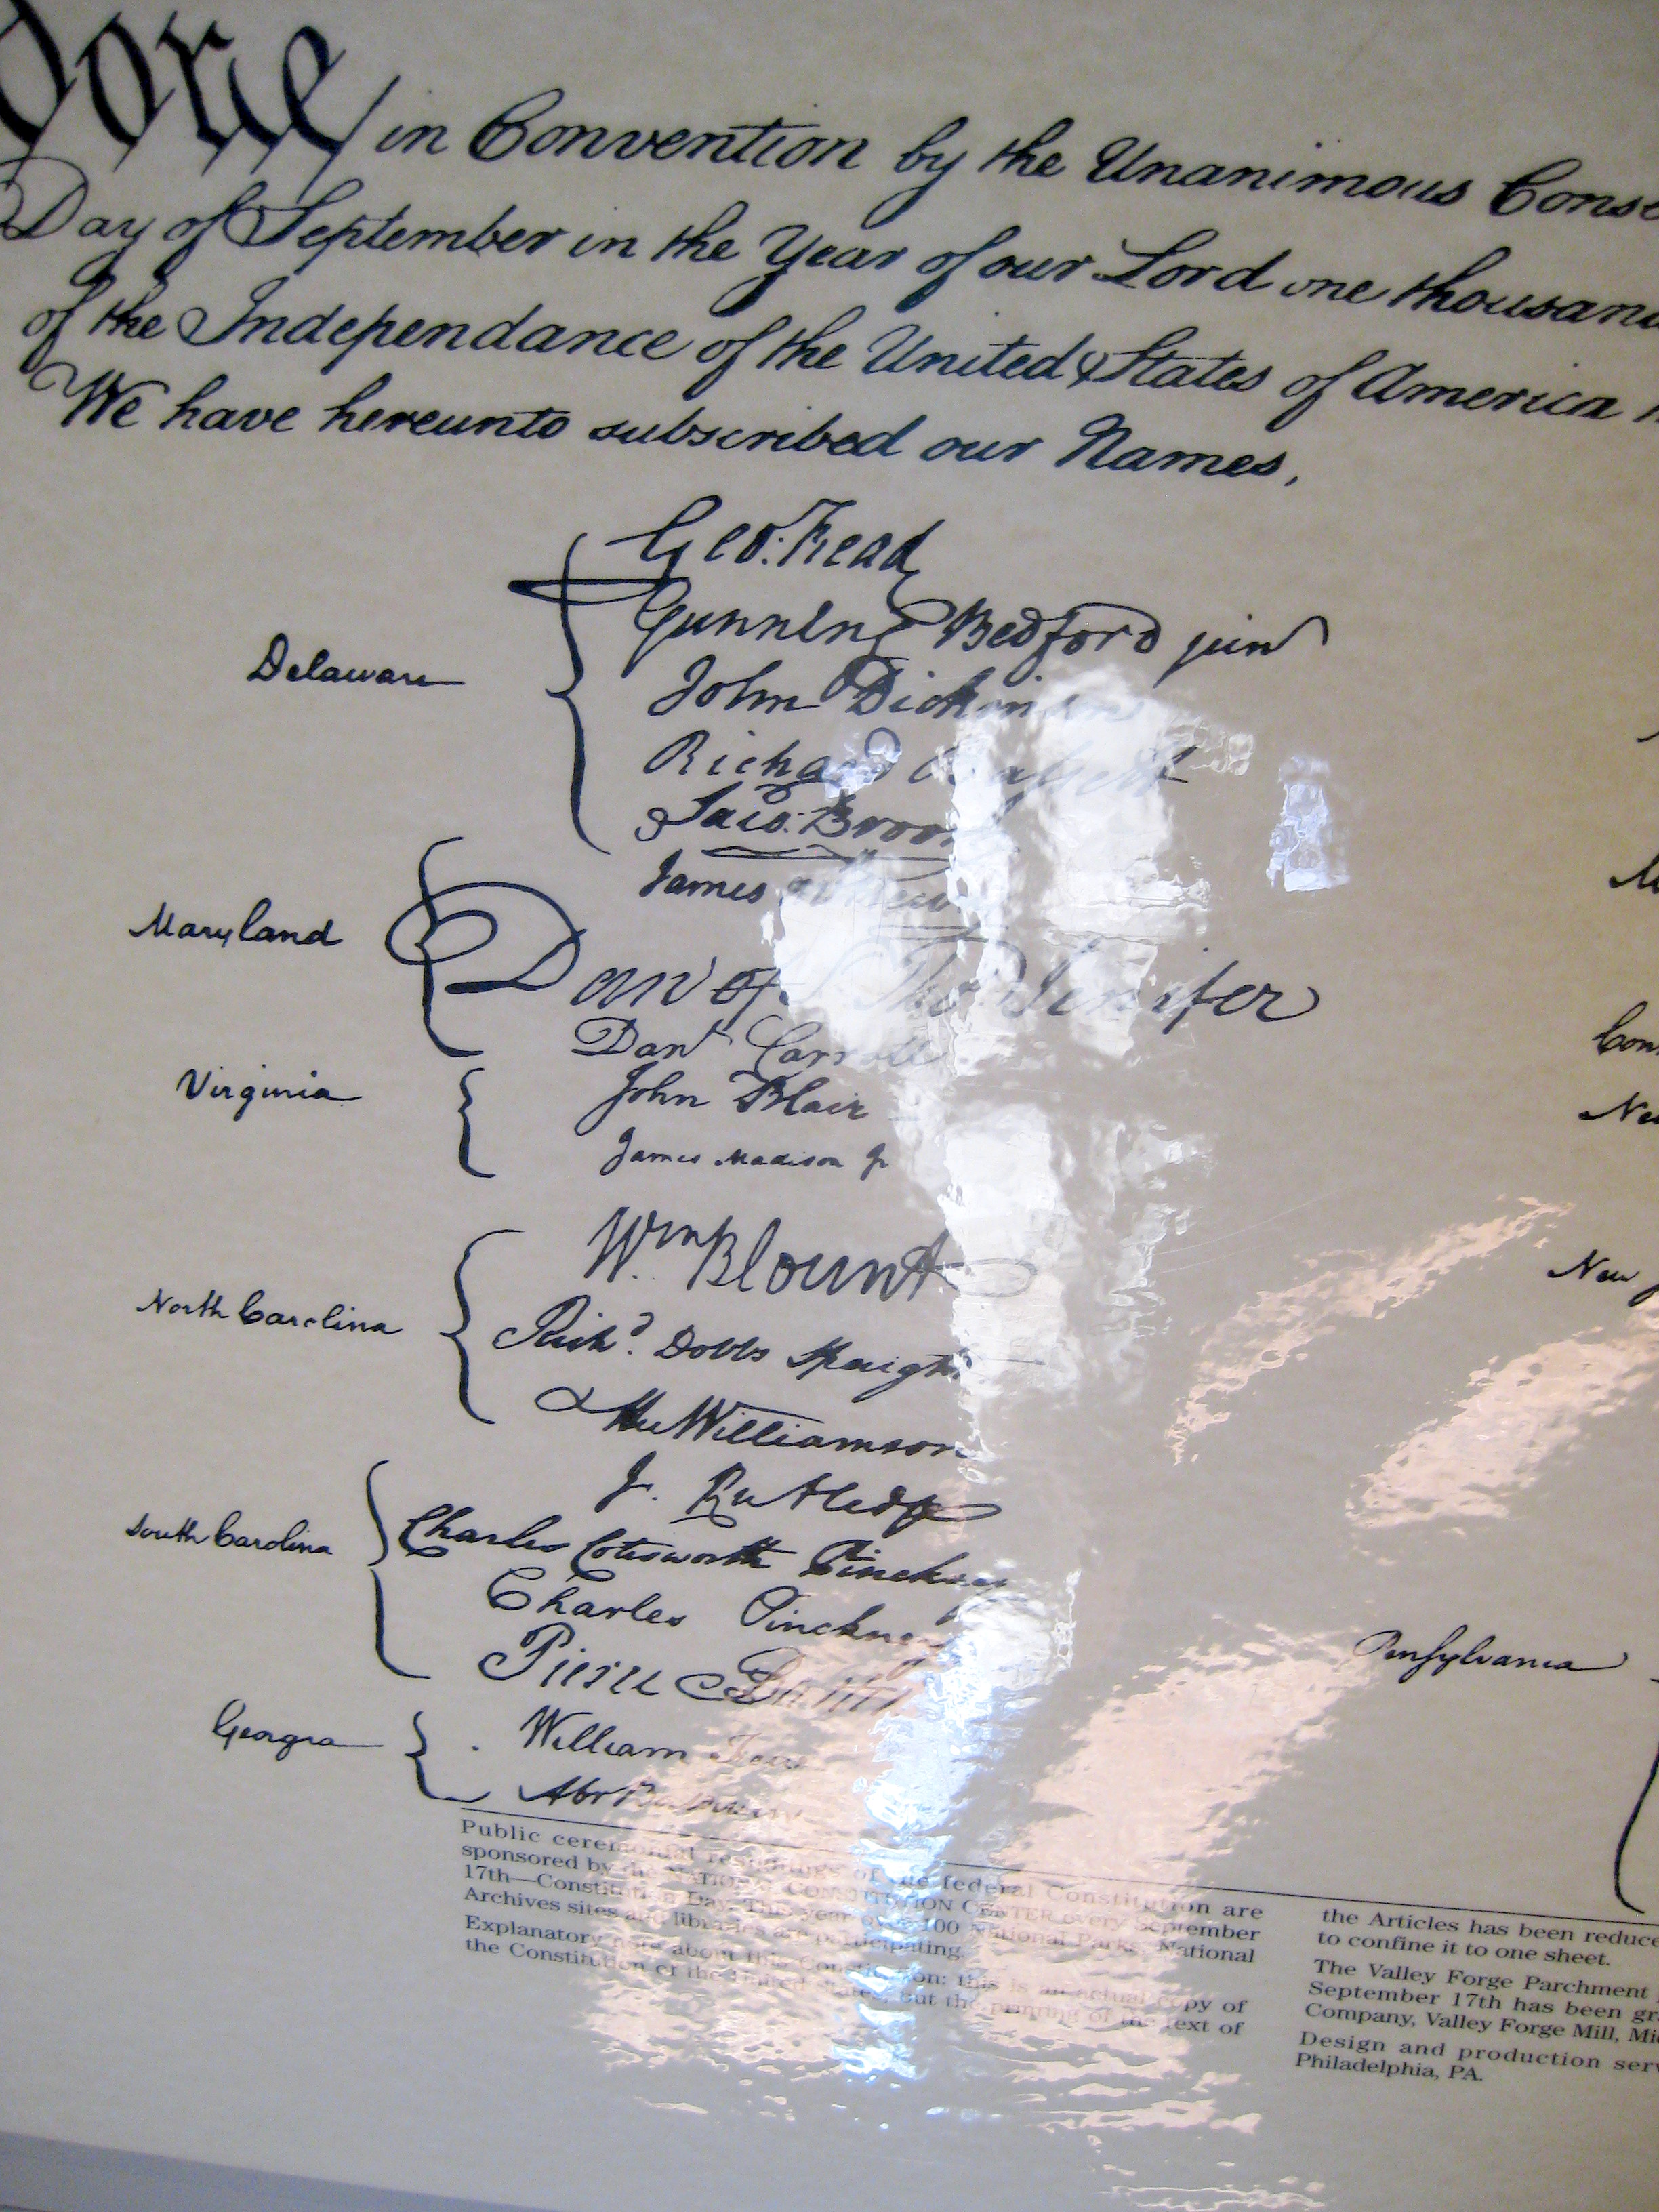 Done in Convention by the Unanimous Conse
Day of September in the Year of our Lord one thousand
of the Independance of the United States of America
We have hereunto subscribed our Names,
Delaware
Geo: Read
Gunning Bedford jun
John Dickinson
Richard Bassett
Jaco: Broom
Maryland
James McHenry
Dan of St Thos Jenifer
Danl Carroll
Virginia
John Blair
James Madison Jr
North Carolina
Wm Blount
Richd. Dobbs Spaight
Hu Williamson
South Carolina
J. Rutledge
Charles Cotesworth Pinckney
Charles Pinckney
Pierce Butler
Georgia
William Few
Abr Baldwin
Con
New
Pensylvania
Public ceremonial resignings of the federal Constitution are
sponsored by the NATIONAL CONSTITUTION CENTER every September
17th—Constitution Day. This year over 100 National Parks, National
Archives sites and libraries are participating.
Explanatory note about this Constitution: this is an actual copy of
the Constitution of the United States, but the printing of the text of
the Articles has been reduce
to confine it to one sheet.
The Valley Forge Parchment
September 17th has been gr
Company, Valley Forge Mill, Mi
Design and production serv
Philadelphia, PA.